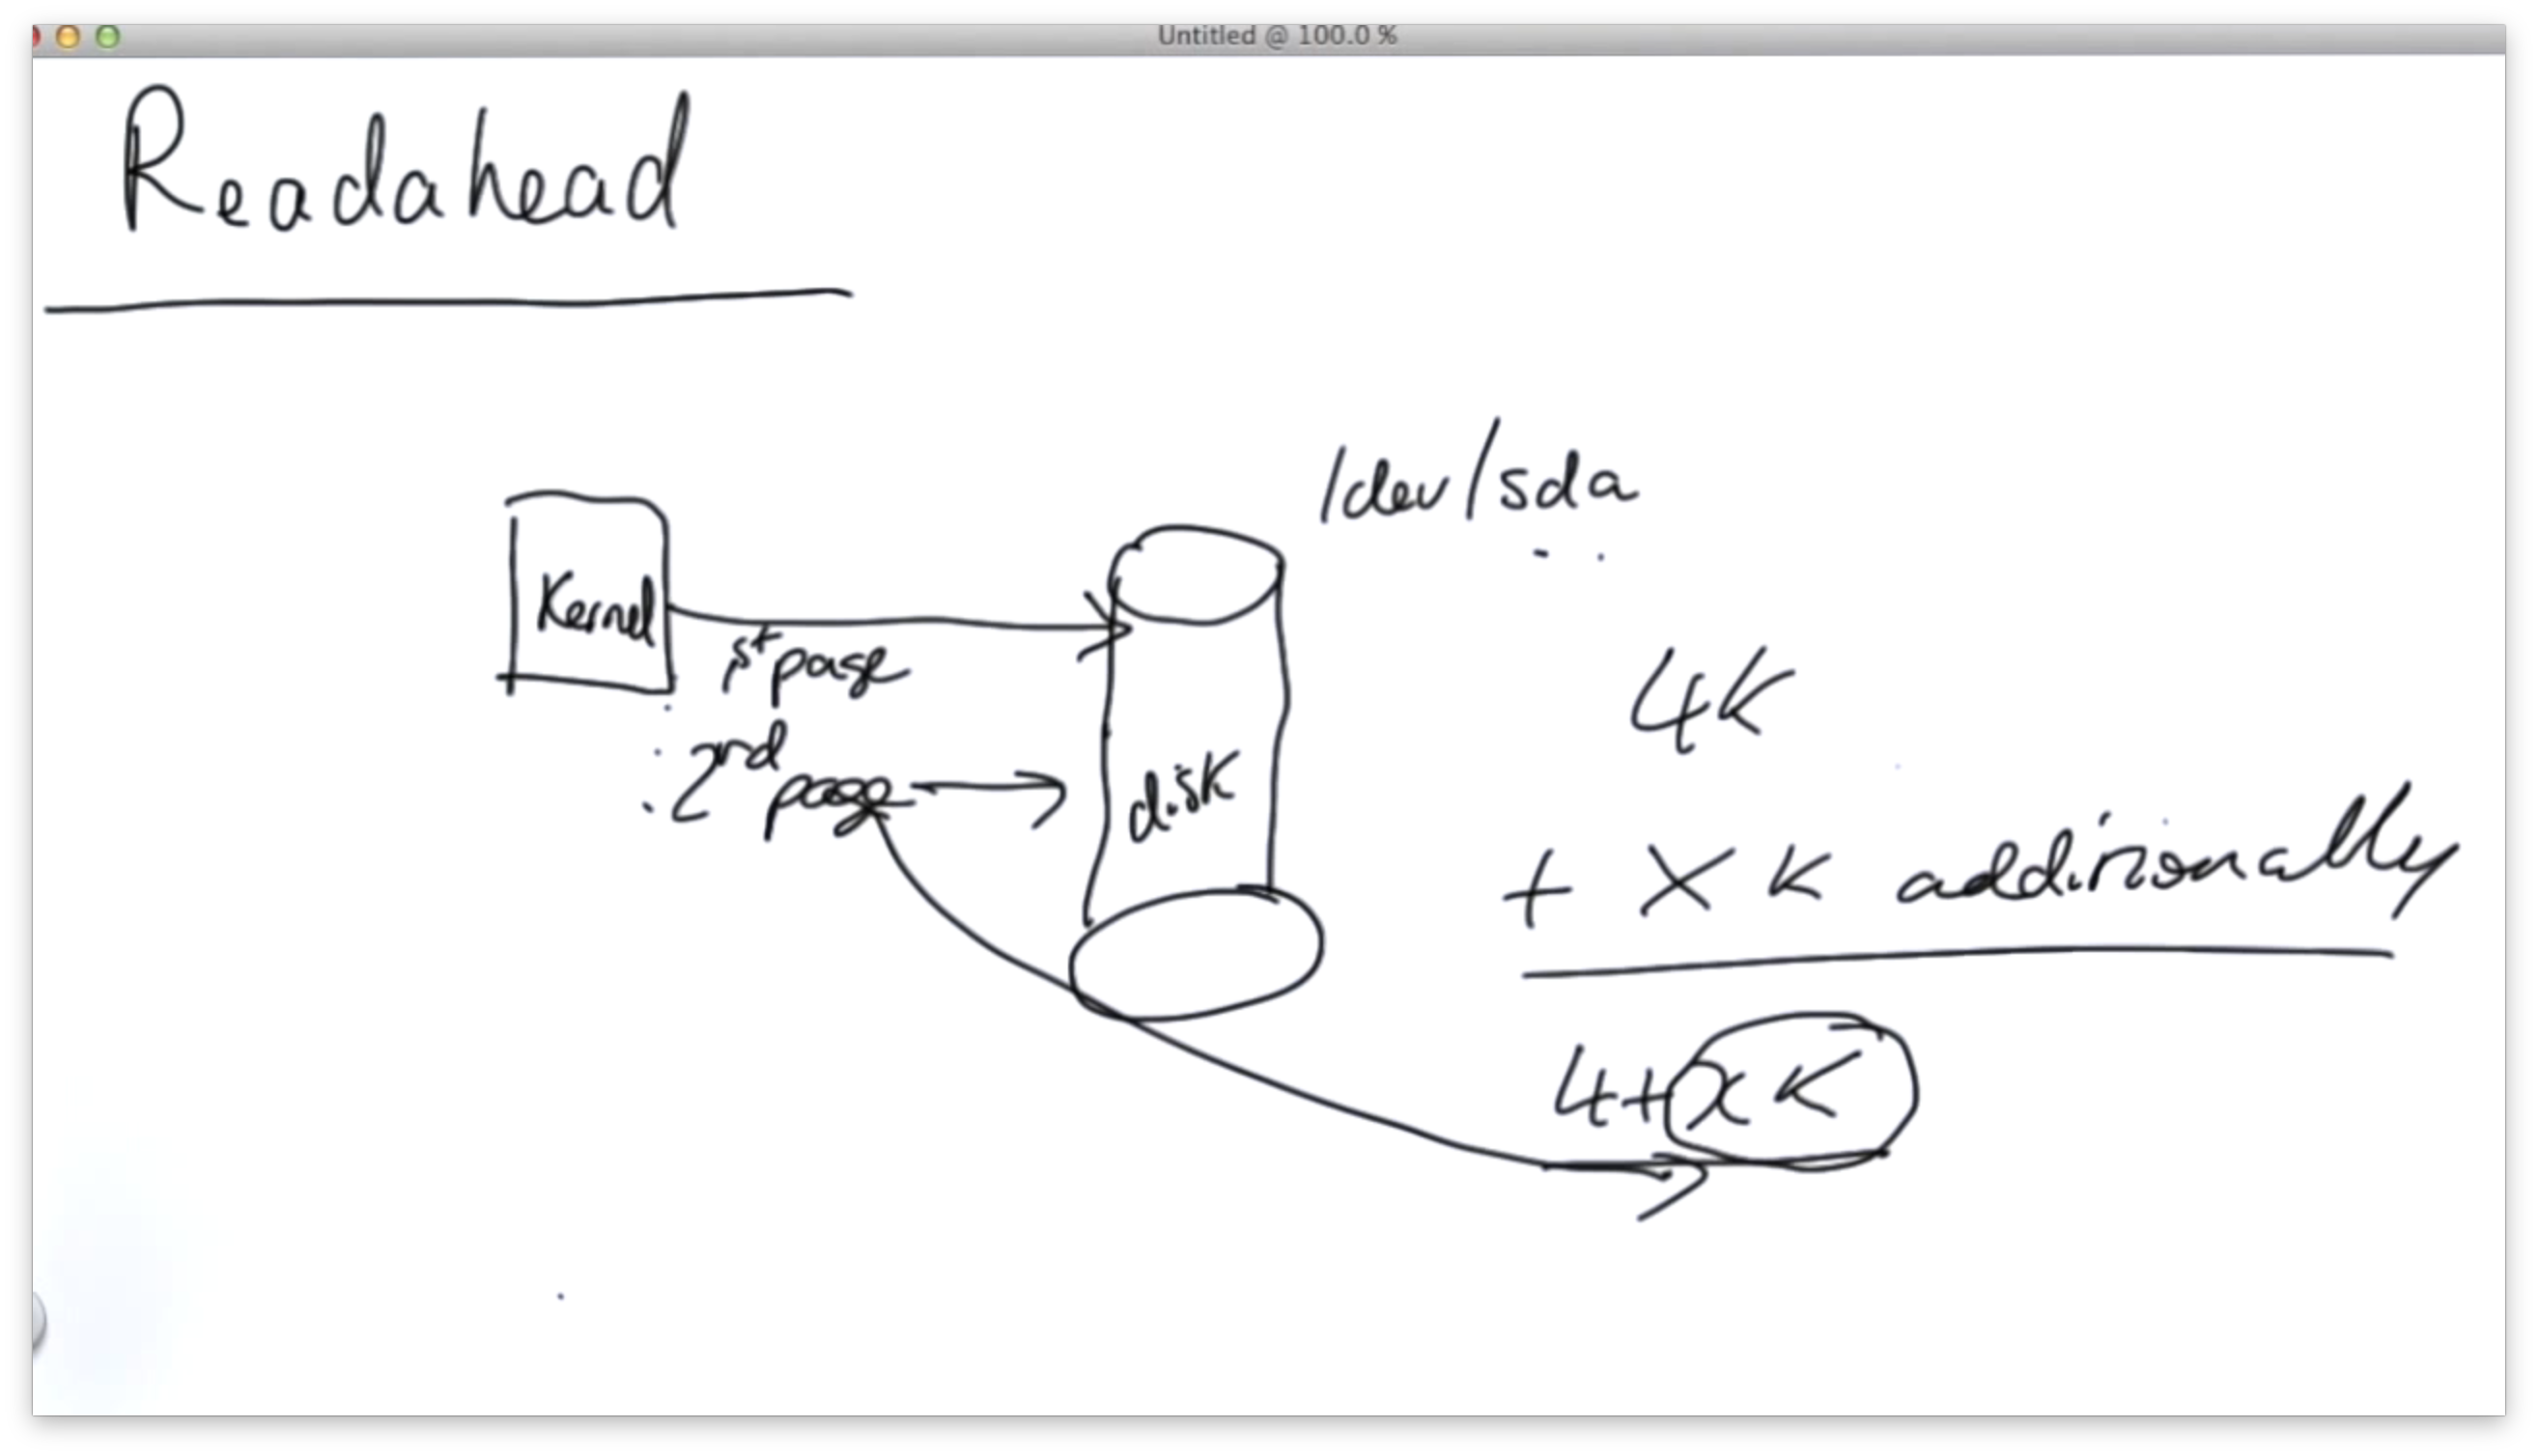 Untitled @ 100.0 %
Readahead
/dev/sda
Kernel
1st page
2rd page
disk
4K
+ X K additionally
4+xK